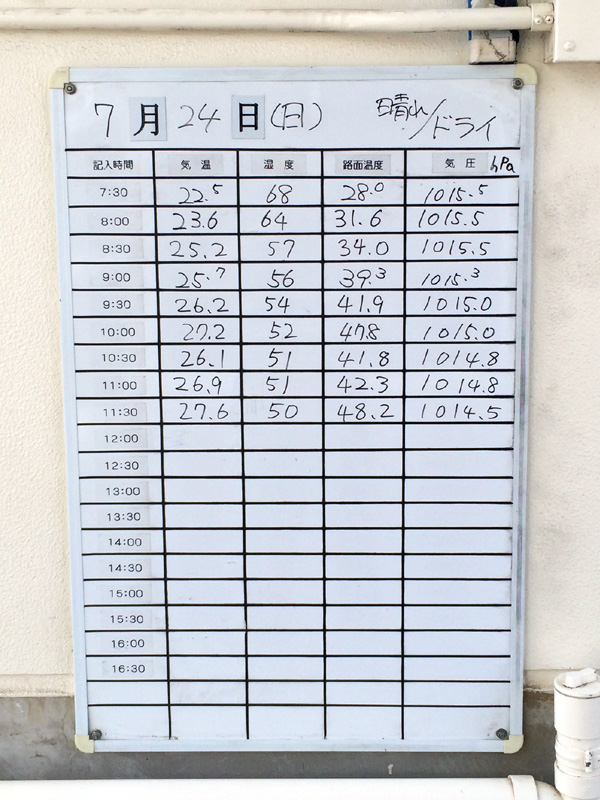 7月24日(日) 晴れ/ドライ
記入時間 気温 湿度 路面温度 気圧 hPa
7:30 22.5 68 28.0 1015.5
8:00 23.6 64 31.6 1015.5
8:30 25.2 57 34.0 1015.5
9:00 25.7 56 39.3 1015.3
9:30 26.2 54 41.9 1015.0
10:00 27.2 52 47.8 1015.0
10:30 26.1 51 41.8 1014.8
11:00 26.9 51 42.3 1014.8
11:30 27.6 50 48.2 1014.5
12:00
12:30
13:00
13:30
14:00
14:30
15:00
15:30
16:00
16:30